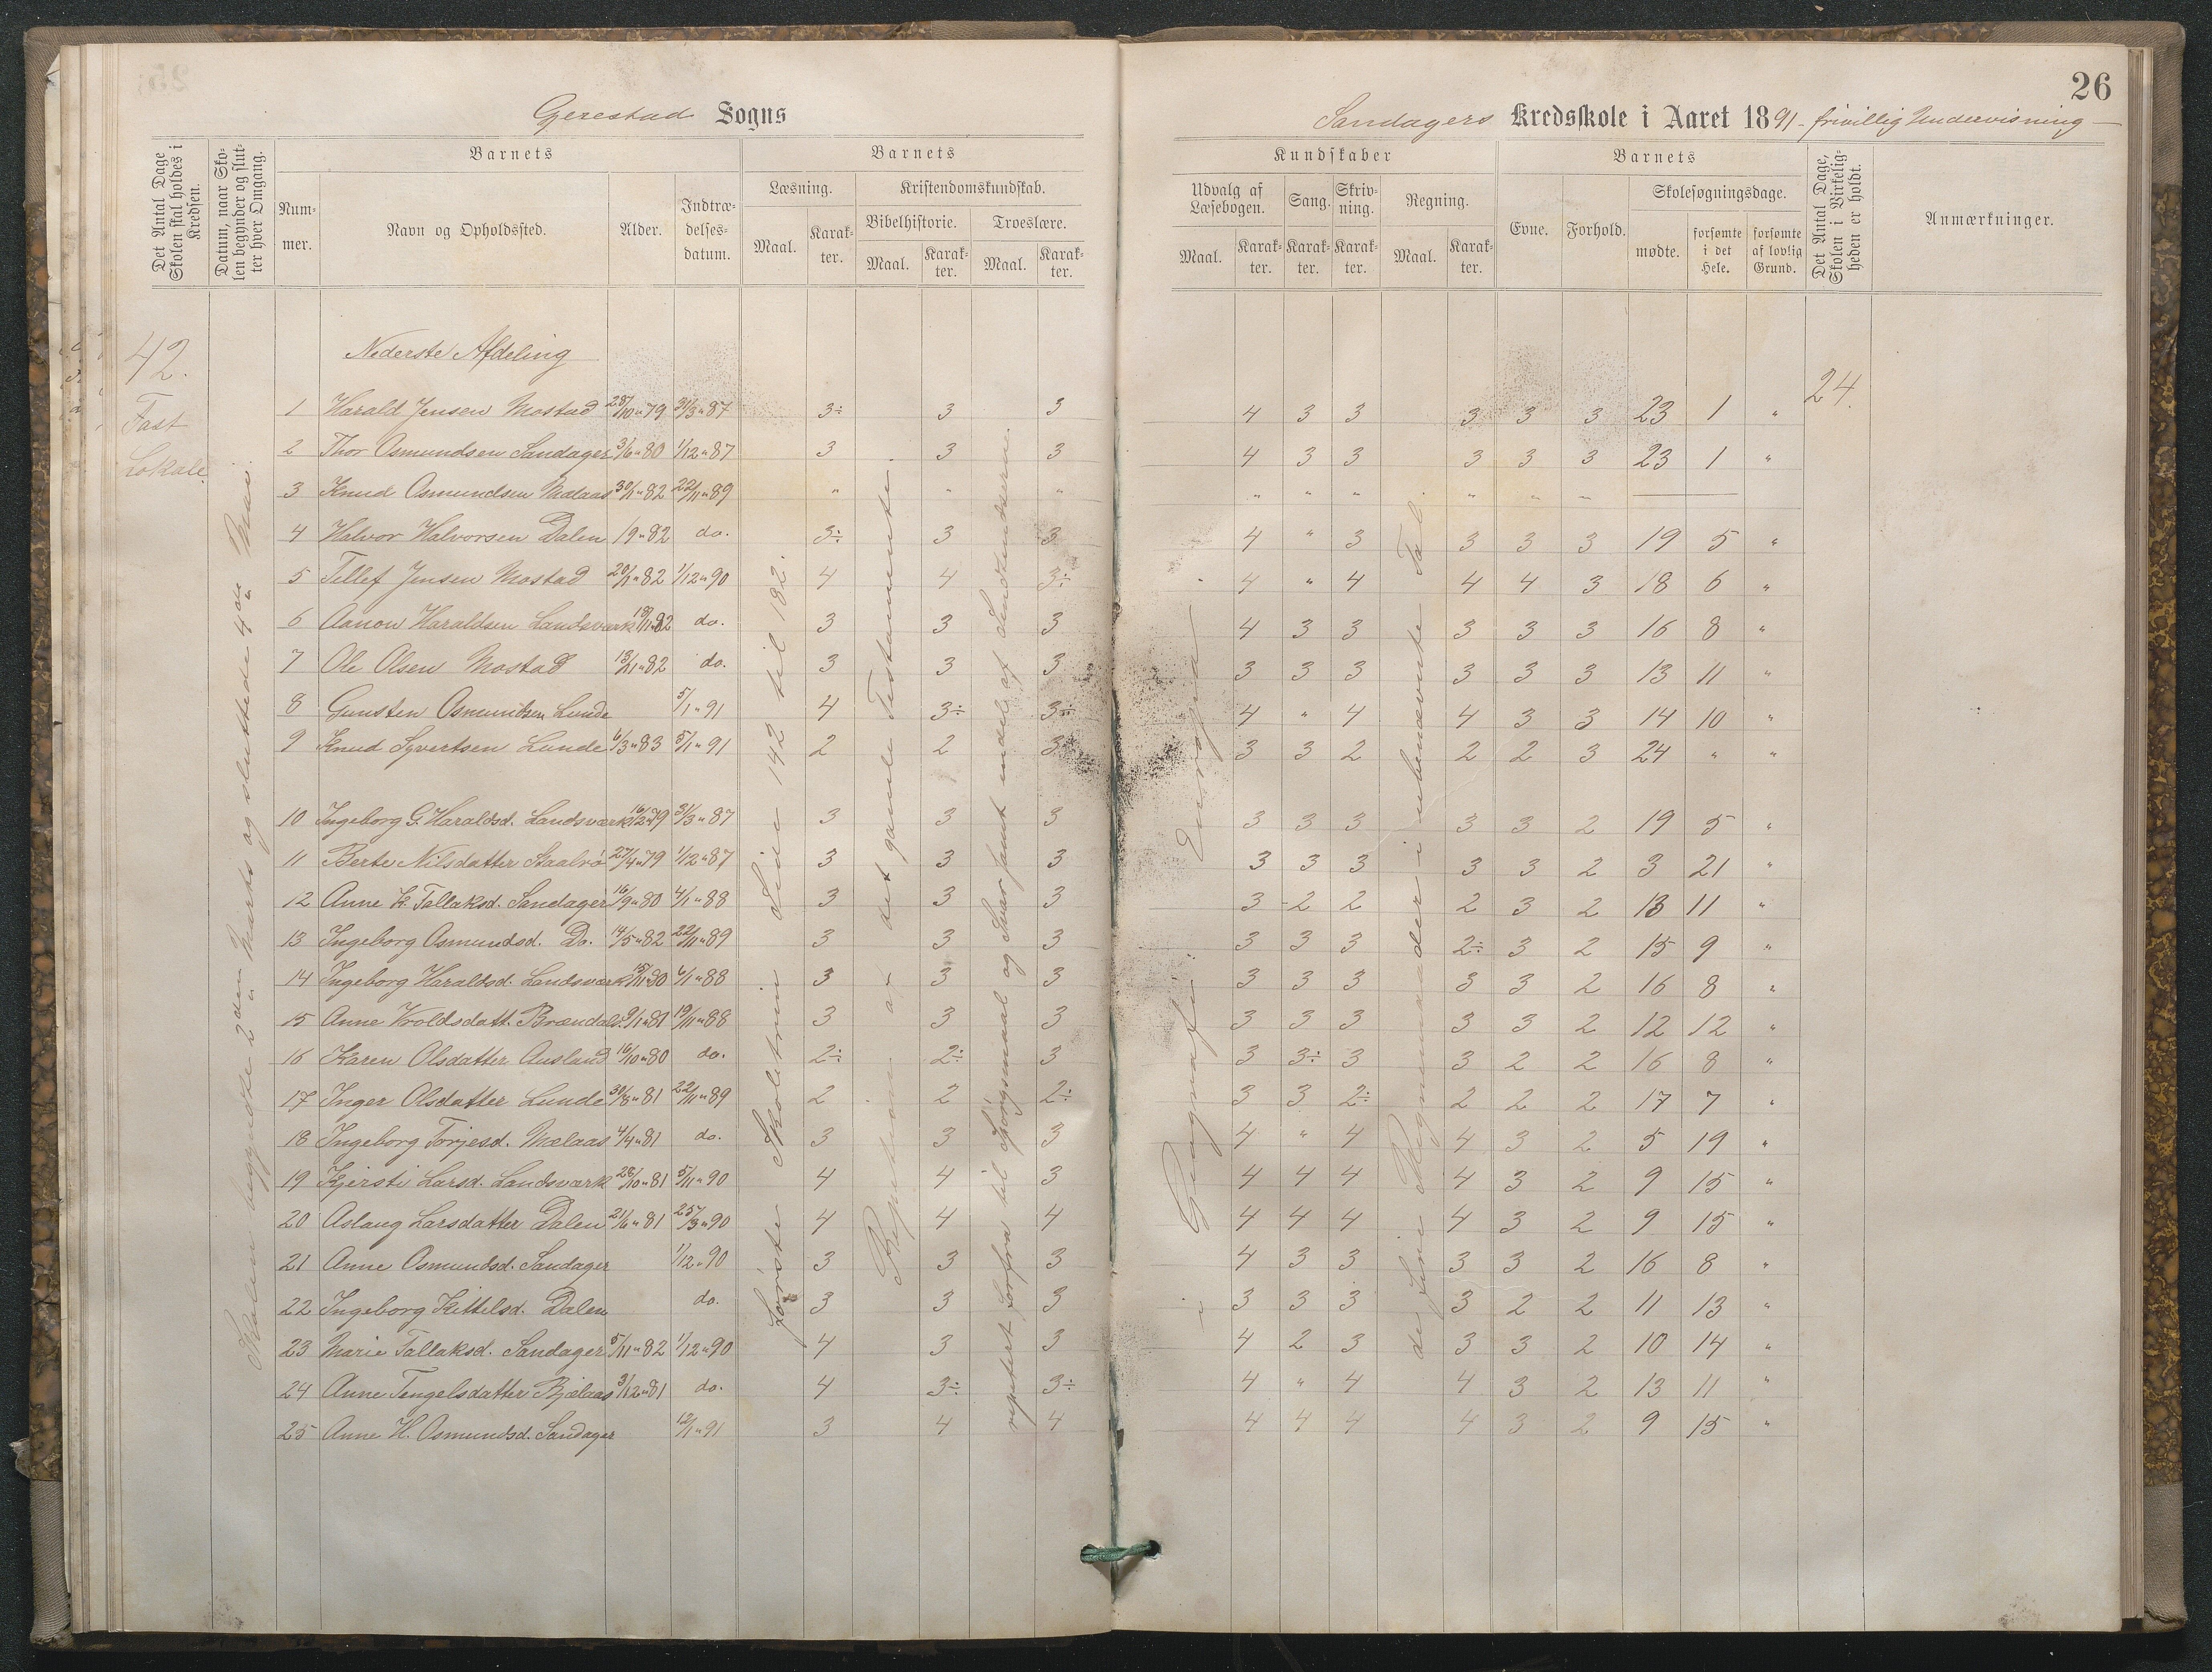 26
Gjerestad Sogns
Sandagers Kredsskole i Aaret 1891 - frivillig Undervisning -
Det Antal Dage Skolen skal holdes i Kredsen.
Datum, naar Skolen begynder og slutter hver Omgang.
Barnets
Nummer.
Navn og Opholdssted.
Alder.
Indtrædelsesdatum.
Barnets
Læsning.
Maal.
Karakter.
Kristendomskundskab.
Bibelhistorie.
Maal.
Karakter.
Troeslære.
Maal.
Karakter.
Kundskaber
Udvalg af Læsebogen.
Maal.
Karakter.
Sang.
Karakter.
Skrivning.
Karakter.
Regning.
Maal.
Karakter.
Barnets
Evne.
Forhold.
Skolesøgningsdage.
mødte.
forsømte i det Hele.
forsømte af lovlig Grund.
Det Antal Dage, Skolen i Virkeligheden er holdt.
Anmærkninger.
42.
Fast
Lokale
Skolen begyndte 2den Marts og sluttede 4de Mai.
Nederste Afdeling
24.
1 Harald Jensen Mostad 28/10 79 31/3 87 3÷ 3 3 4 3 3 3 3 3 23 1 "
2 Thor Osmundsen Sandager 3/6 80 1/12 87 3 3 3 4 3 3 3 3 3 23 1 "
3 Knud Osmundsen Mælaas 30/1 82 22/11 89 " " " " " " " " "
4 Halvor Halvorsen Dalen 19 82 do. 3÷ 3 3 4 " 3 3 3 3 19 5 "
5 Tellef Jensen Mostad 20/1 82 1/12 90 4 4 3÷ 4 " 4 4 4 3 18 6 "
6 Aanon Haraldsen Landsværk 18/11 82 do. 3 3 3 4 3 3 3 3 3 16 8 "
7 Ole Olsen Mostad 13/11 82 do. 3 3 3 3 3 3 3 3 3 13 11 "
8 Gunsten Osmundsen Lunde 5/1 91 4 3÷ 3÷ 4 " 4 4 3 3 14 10 "
9 Knud Syvertsen Lunde 6/3 83 5/1 91 2 2 3 3 3 2 2 2 3 24 " "
10 Ingeborg G. Haraldsd. Landsværk 16/12 79 31/3 87 3 3 3 3 3 3 3 3 2 19 5 "
11 Berte Nilsdatter Staalvo 27/4 79 1/12 87 3 3 3 3 3 3 3 3 2 3 21 "
12 Anne K. Tallaksd. Sandager 16/9 80 4/1 88 3 3 3 3 2 2 2 3 2 13 11 "
13 Ingeborg Osmundsd. Do. 14/5 82 22/11 89 3 3 3 3 3 3 2÷ 3 2 15 9 "
14 Ingeborg Haraldsd. Landsværk 15/11 80 6/1 88 3 3 3 3 3 3 3 3 2 16 8 "
15 Anne Vroldsdatt. Brændal 9/1 81 19/11 88 3 3 3 3 3 3 3 3 2 12 12 "
16 Karen Olsdatter Ausland 16/10 80 do. 2÷ 2÷ 3 3 3÷ 3 3 2 2 16 8 "
17 Inger Olsdatter Lunde 30/8 81 22/11 89 2 2 2÷ 3 3 2÷ 2 2 2 17 7 "
18 Ingeborg Torjesd. Mælaas 4/4 81 do. 3 3 3 4 " 4 4 3 2 5 19 "
19 Kjersti Larsd. Landsværk 28/10 81 5/11 90 4 4 3 4 4 4 4 3 2 9 15 "
20 Aslaug Larsdatter Dalen 21/6 81 25/3 90 4 4 4 4 4 4 4 3 2 9 15 "
21 Anne Osmundsd. Sandager 1/12 90 3 3 3 4 3 3 3 3 2 16 8 "
22 Ingeborg Kittelsd. Dalen do. 3 3 3 3 3 3 3 2 2 11 13 "
23 Marie Tallaksd. Sandager 5/11 82 1/12 90 4 3 3 4 2 3 3 3 2 10 14 "
24 Anne Tengelsdatter Bjælaas 3/12 81 do. 4 3÷ 3÷ 4 " 4 4 3 2 13 11 "
25 Anne H. Osmundsd. Sandager 12/1 91 3 4 4 4 4 4 4 3 2 9 15 "
Første Skoletrin Side 142 til 182.
Repetition af det gamle Testamente.
repetert forfra til Spørgsmaal og Svar samt endel af Sendundserne
i Geografi
de fire Regnemaader i ubenævnte Tal.